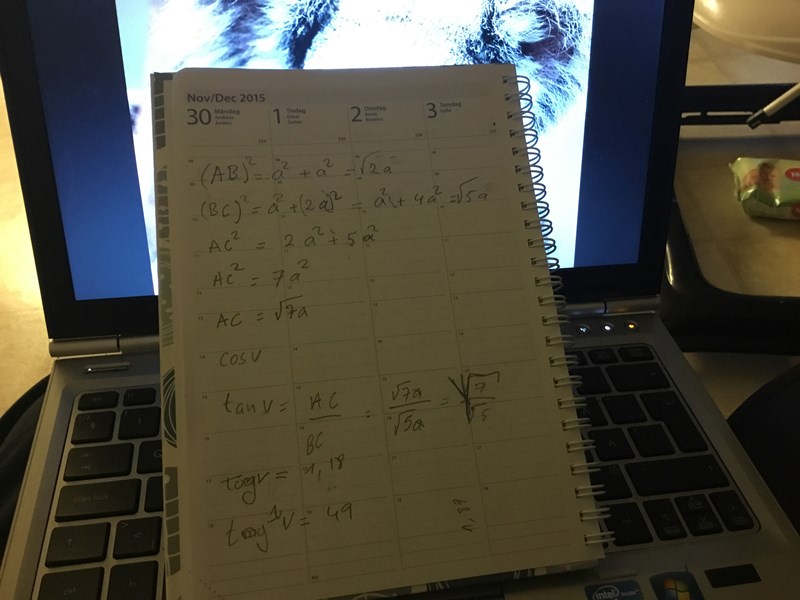 Nov/Dec 2015
30 Måndag 1 Tisdag 2 Onsdag 3 Torsdag
(AB)² = a² + a² = √2a
(BC)² = a² + (2a)² = a² + 4a² = √5a
AC² = 2a² + 5a²
AC² = 7a²
AC = √7a
cos v
tan v = AC/BC = √7a/√5a = √7/√5
= 1,18
v = 49
intel